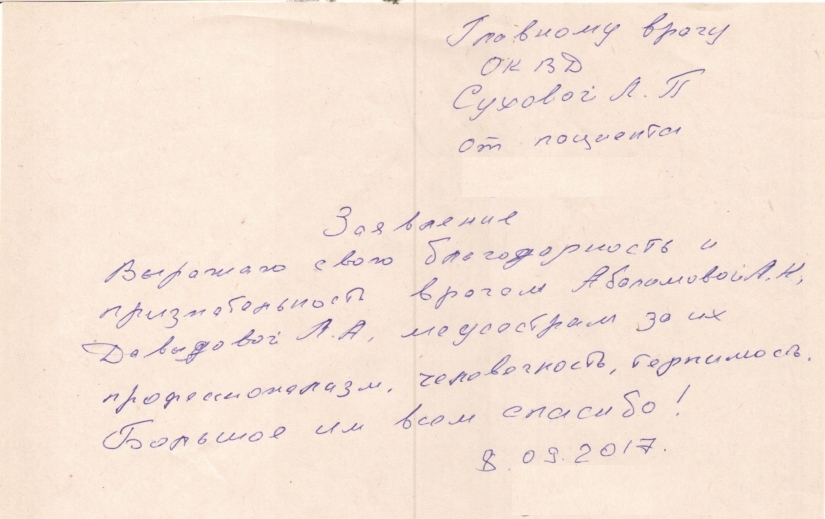 Главному врачу
ОКВД
Суховой Л. П
от пациента
Заявление
Выражаю свою благодарность и
признательность врачам Абаламовой Л. Н,
Давыдовой Л. А, медсестрам за их
професионализм, человечность, терпимость.
Большое им всем спасибо!
8.09.2017.